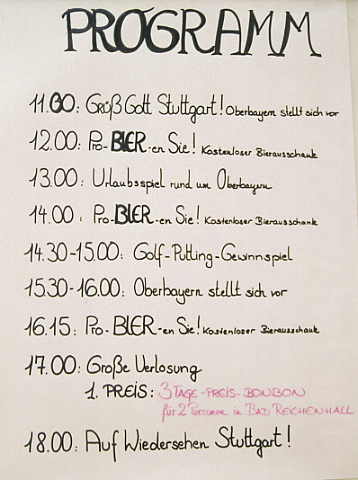 PROGRAMM
11.00: Grüß Gott Stuttgart! Oberbayern stellt sich vor
12.00: Pro-BIER-en Sie! Kostenloser Bierausschank
13.00: Urlaubsspiel rund um Oberbayern
14.00: Pro-BIER-en Sie! Kostenloser Bierausschank
14.30-15.00: Golf-Putting-Gewinnspiel
15.30-16.00: Oberbayern stellt sich vor
16.15: Pro-BIER-en Sie! Kostenloser Bierausschank
17.00: Große Verlosung
1. PREIS: 3 TAGE-PREIS-BONBON
für 2 Personen in BAD REICHENHALL
18.00: Auf Wiedersehen Stuttgart!